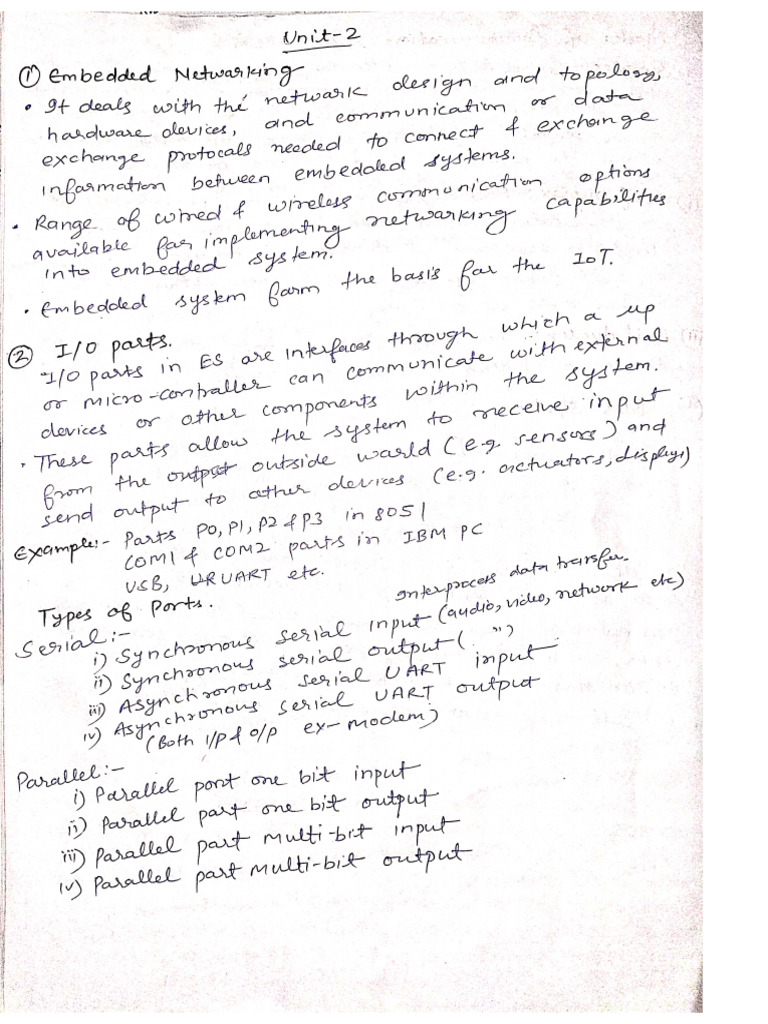 Unit-2
① Embedded Networking
• It deals with the network design and topology,
hardware devices, and communication or data
exchange protocols needed to connect & exchange
information between embedded systems.
• Range of wired & wireless communication options
available for implementing networking capabilities
into embedded system.
• Embedded system form the basis for the IoT.
② I/O ports.
• I/O ports in ES are interfaces through which a μp
or micro-controller can communicate with external
devices or other components within the system.
• These ports allow the system to receive input
from the output outside world (e.g. sensors) and
send output to other devices (e.g. actuators, displays)
Example:- Ports P0, P1, P2 & P3 in 8051
COM1 & COM2 ports in IBM PC
USB, URUART etc.
Types of Ports.
Interprocess data transfer.
Serial:-
i) Synchronous serial input (audio, video, network etc)
ii) Synchronous serial output ( " )
iii) Asynchronous serial UART input
iv) Asynchronous serial UART output
(Both i/p & o/p ex- modem)
Parallel:-
i) Parallel port one bit input
ii) Parallel port one bit output
iii) Parallel port multi-bit input
iv) Parallel port multi-bit output